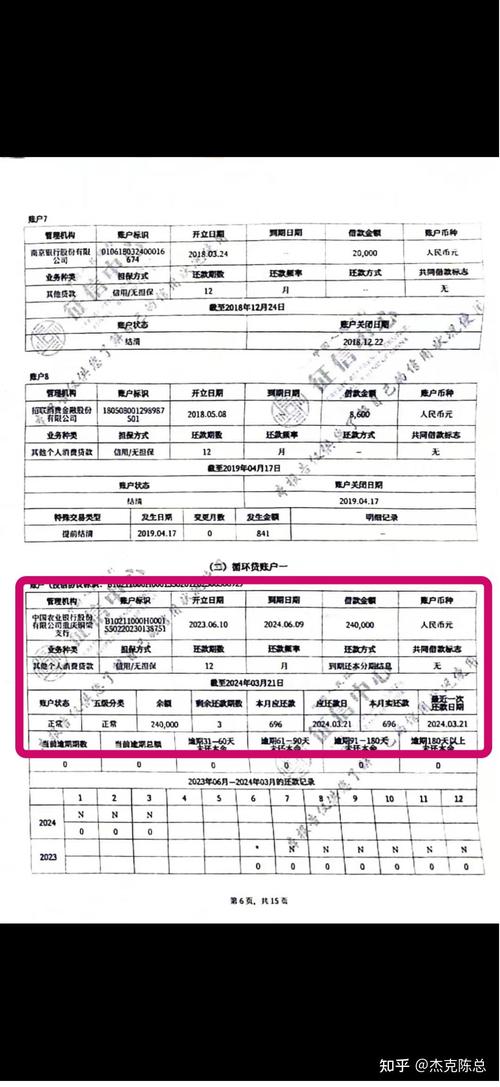 账户7
管理机构 账户标识 开立日期 到期日期 借款金额 账户币种
南京银行股份有限公司 010618032400016674 2018.03.24 -- 20,000 人民币元
业务种类 担保方式 还款期数 还款频率 还款方式 共同借款标志
其他贷款 信用/无担保 12 月 -- 无
截至2018年12月24日
账户状态 账户关闭日期
结清 2018.12.22
账户8
管理机构 账户标识 开立日期 到期日期 借款金额 账户币种
招联消费金融股份有限公司 180508001298987501 2018.05.08 8,600 人民币元
业务种类 担保方式 还款期数 还款频率 还款方式 共同借款标志
其他个人消费贷款 信用/无担保 12 月 -- 无
截至2019年04月17日
账户状态 账户关闭日期
结清 2019.04.17
特殊交易类型 发生日期 变更月数 发生金额 明细记录
提前结清 2019.04.17 0 841 --
(二) 循环贷账户一
管理机构 账户标识 开立日期 到期日期 借款金额 账户币种
中国农业银行股份有限公司重庆铜梁支行 2023.06.10 2024.06.09 240,000 人民币元
业务种类 担保方式 还款期数 还款频率 还款方式 共同借款标志
其他个人消费贷款 信用/无担保 12 月 到期还本分期结息 无
截至2024年03月21日
账户状态 五级分类 余额 剩余还款期数 本月应还款 应还款日 本月实还款 最近一次还款日期
正常 正常 240,000 3 696 2024.03.21 696 2024.03.21
当前逾期期数 当前逾期总额 逾期31—60天未还本金 逾期61—90天未还本金 逾期91—180天未还本金 逾期180天以上未还本金
0 0 0 0 0 0
2023年06月—2024年03月的还款记录
1 2 3 4 5 6 7 8 9 10 11 12
2024 N N N
0 0 0
2023 * N N N N N N
0 0 0 0 0 0 0
第6页，共15页
知乎 @杰克陈总